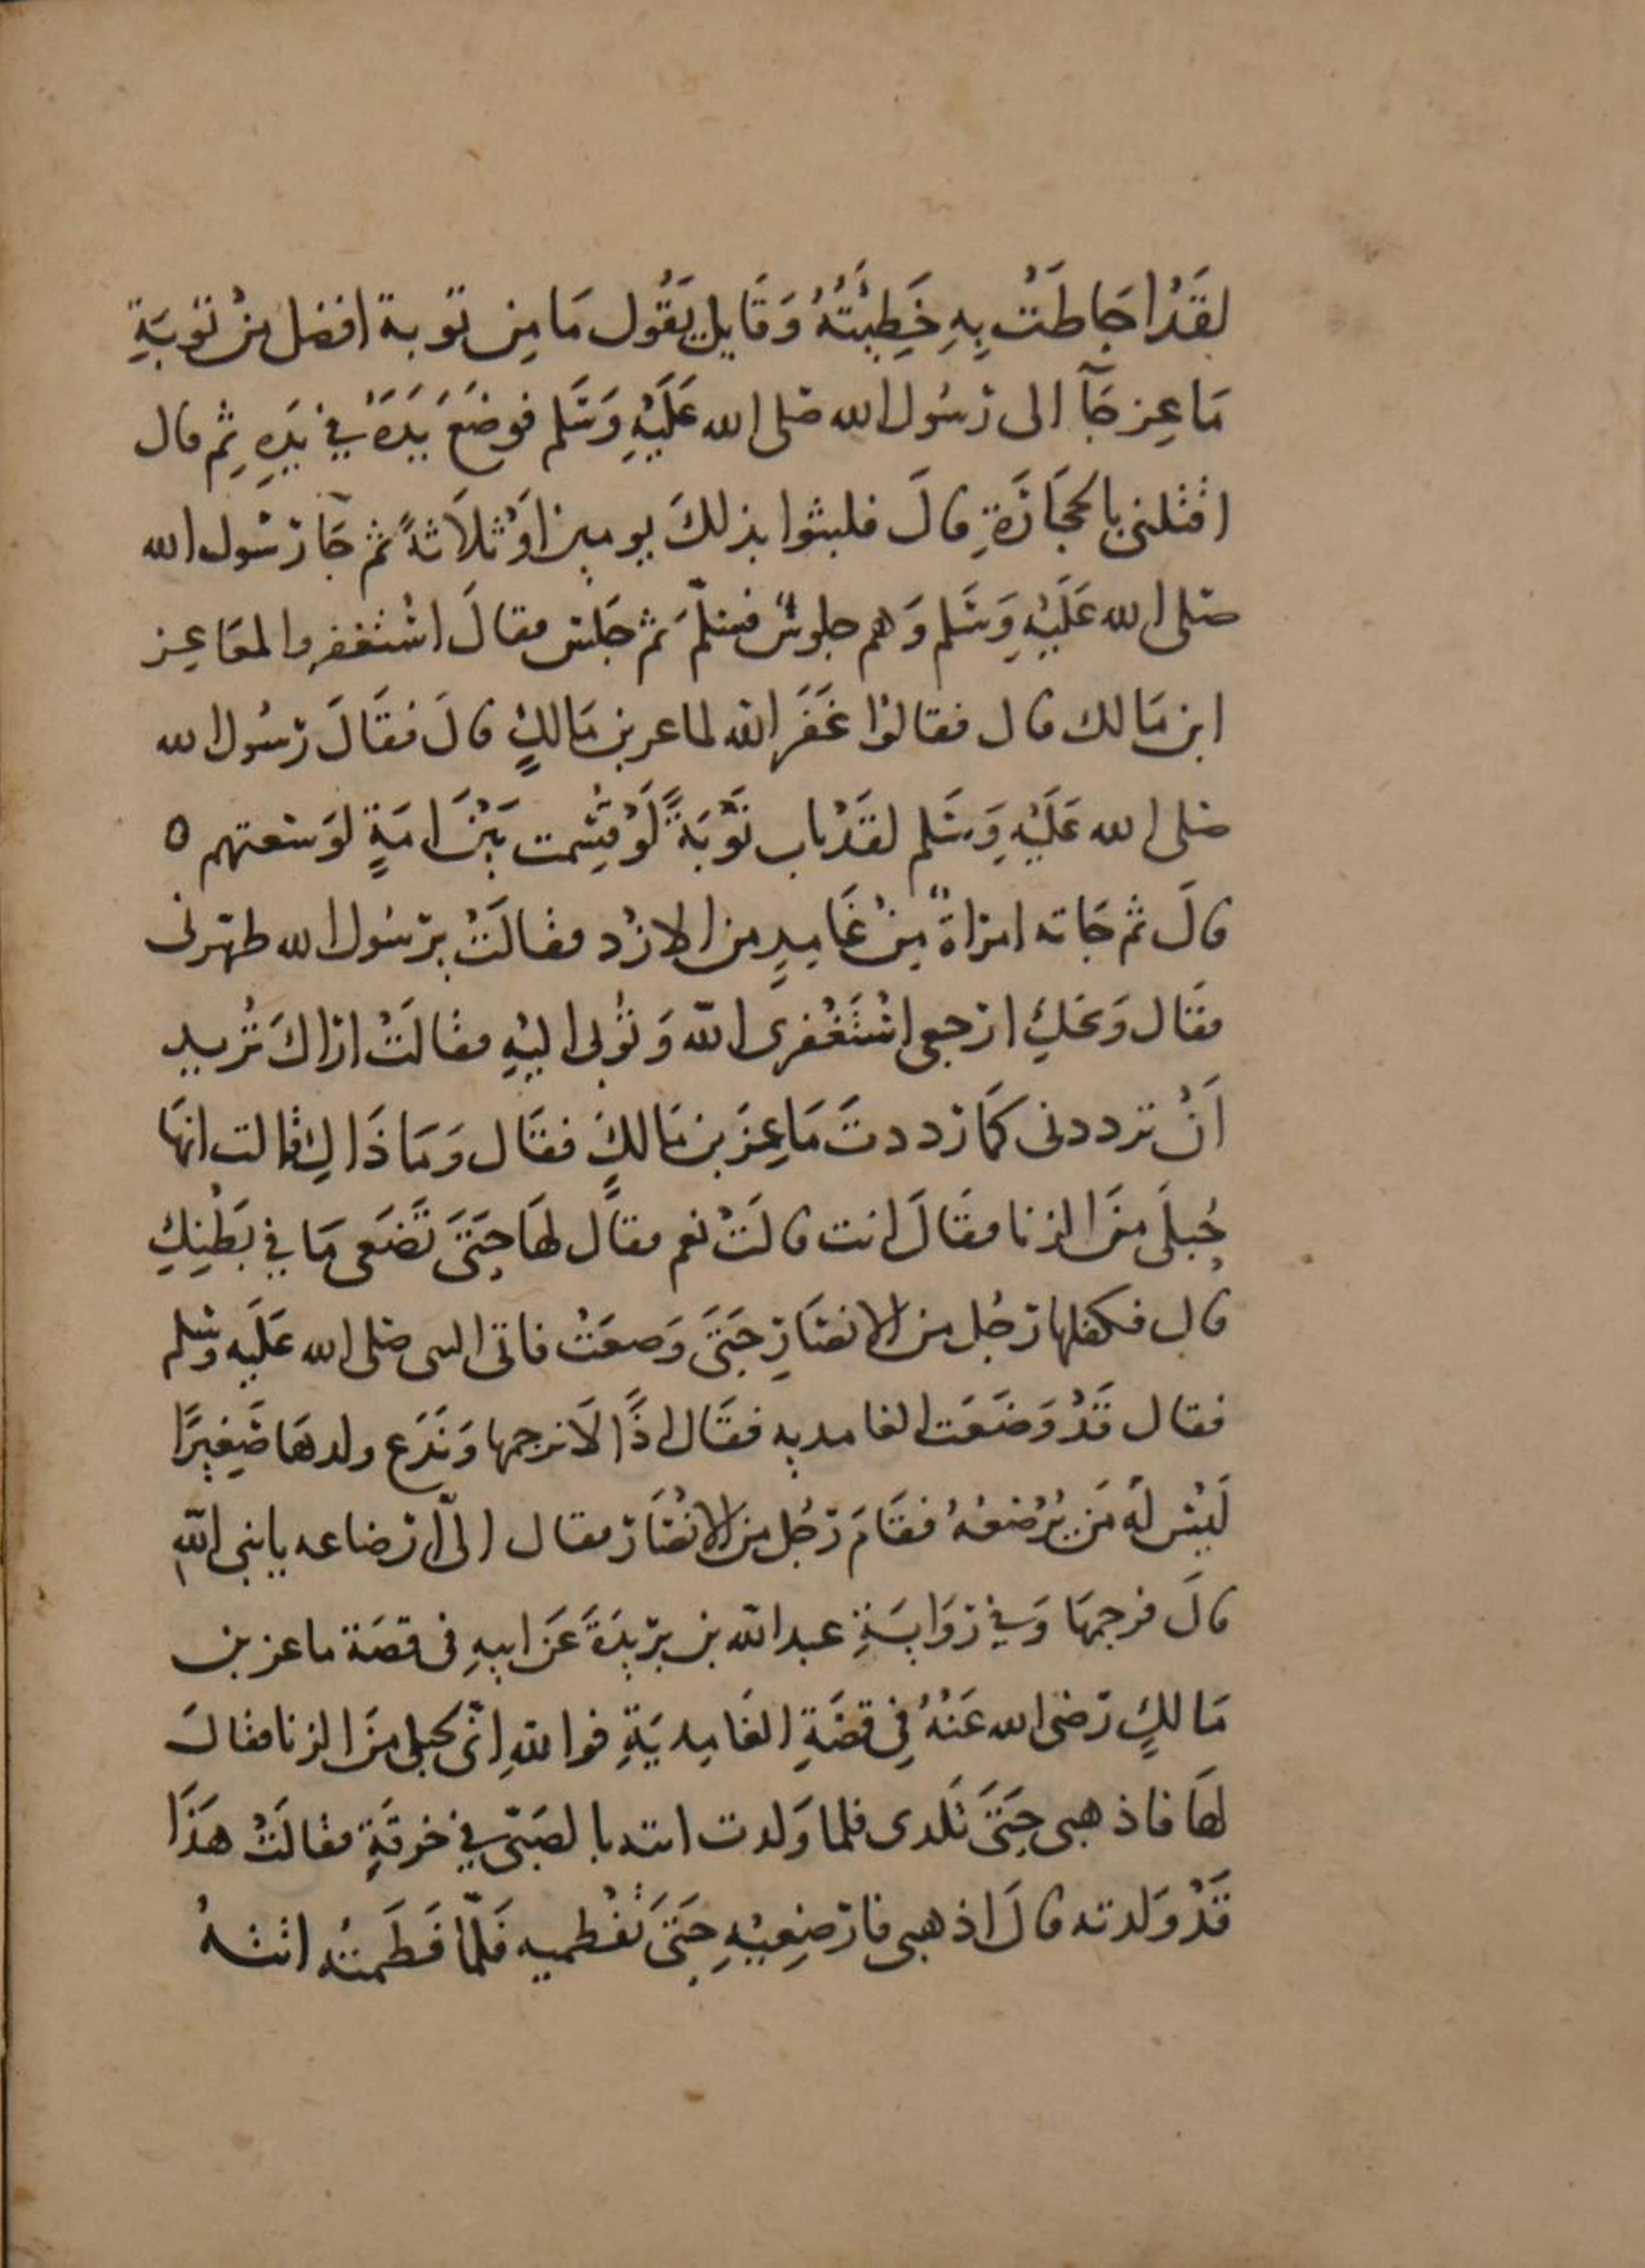 لقَدْ احَاطَتْ بِهِ خَطِيْئَتُهُ وَقَايل يَقُول مَا مِن توبة افضل مِنْ تَوبَةِ
مَاعِز جَآ الى رَسُول الله صَلى الله عَلَيْهِ وَسَلم فوضَعَ يَدَهُ فِي يَدِهِ ثم قال
اقتلنى بالحجَارَةِ قالَ فلبثوا بذلكَ يومين اَوْ ثلَاثةً ثم جَآ رَسُول الله
صَلى الله عَلَيْهِ وَسَلم وَهم جلوسٌ فسَلّمَ ثم جَلسَ فقالَ اسْتغفروا لماعِز
ابن مَالك قال فقالوْا غَفَرَ الله لماعز بن مَالكٍ قالَ فقَالَ رَسُول الله
صَلى الله عَلَيْهِ وَسَلم لقَدْ تاب تَوْبَةً لَوْ قُسِمت بَيْنَ امَةٍ لوَسعتهم ٥
قالَ ثم جَاته امرَاةٌ مِنْ غَامِدٍ من الازْد فقالَتْ يرَسُول الله طهّرنى
فقَال وَيحَكِ ارجعى اسْتَغْفرى الله وَتوْبى اليْهِ فقالَتْ ارَاكَ تُريد
اَنْ ترددنى كمَا رَددتَ مَاعِزَ بن مَالكٍ فقَال وَمَا ذَاكِ قالت انهَا
حُبلَى مِنَ الزنا فقَالَ انت قالَتْ نعم فقَال لهَا حَتىَ تَضَعى مَا فِي بَطْنِكِ
قال فكفلهَا رَجُل من الانصَارِ حَتىَ وَضعَتْ فاتى النبى صَلى الله عَلَيه وسَلم
فقال قَدْ وَضَعَت الغامديه فقَال اذًا لَا نرجمها وَنَدَع ولدهَا صَغِيرًا
لَيْسَ لَهُ مَن يُرْضعُهُ فقَامَ رَجُل مِنَ الانْصَار فقال الىَّ رَضاعه يا نبى اللهِ
قالَ فرجمهَا وَفِي رِوَايَةِ عبد الله بن برَيدَةَ عَن ابيهِ فى قصَة ماعز بن
مَالكٍ رَضى الله عَنْهُ فِي قصَّةِ الغَامِديَةِ فوالله اِنّى لحبلى مِنَ الزنا فقالَ
لهَا فاذهبى حَتىَ تَلدى فلما وَلدت اتته بالصَبىّ فِي خرقَةٍ فقالَتْ هَذَا
قَدْ وَلدته قالَ اذهبى فارْضِعِيْهِ حَتىَ تفْطميه فَلمّا فَطَمتْهُ اتتهُ